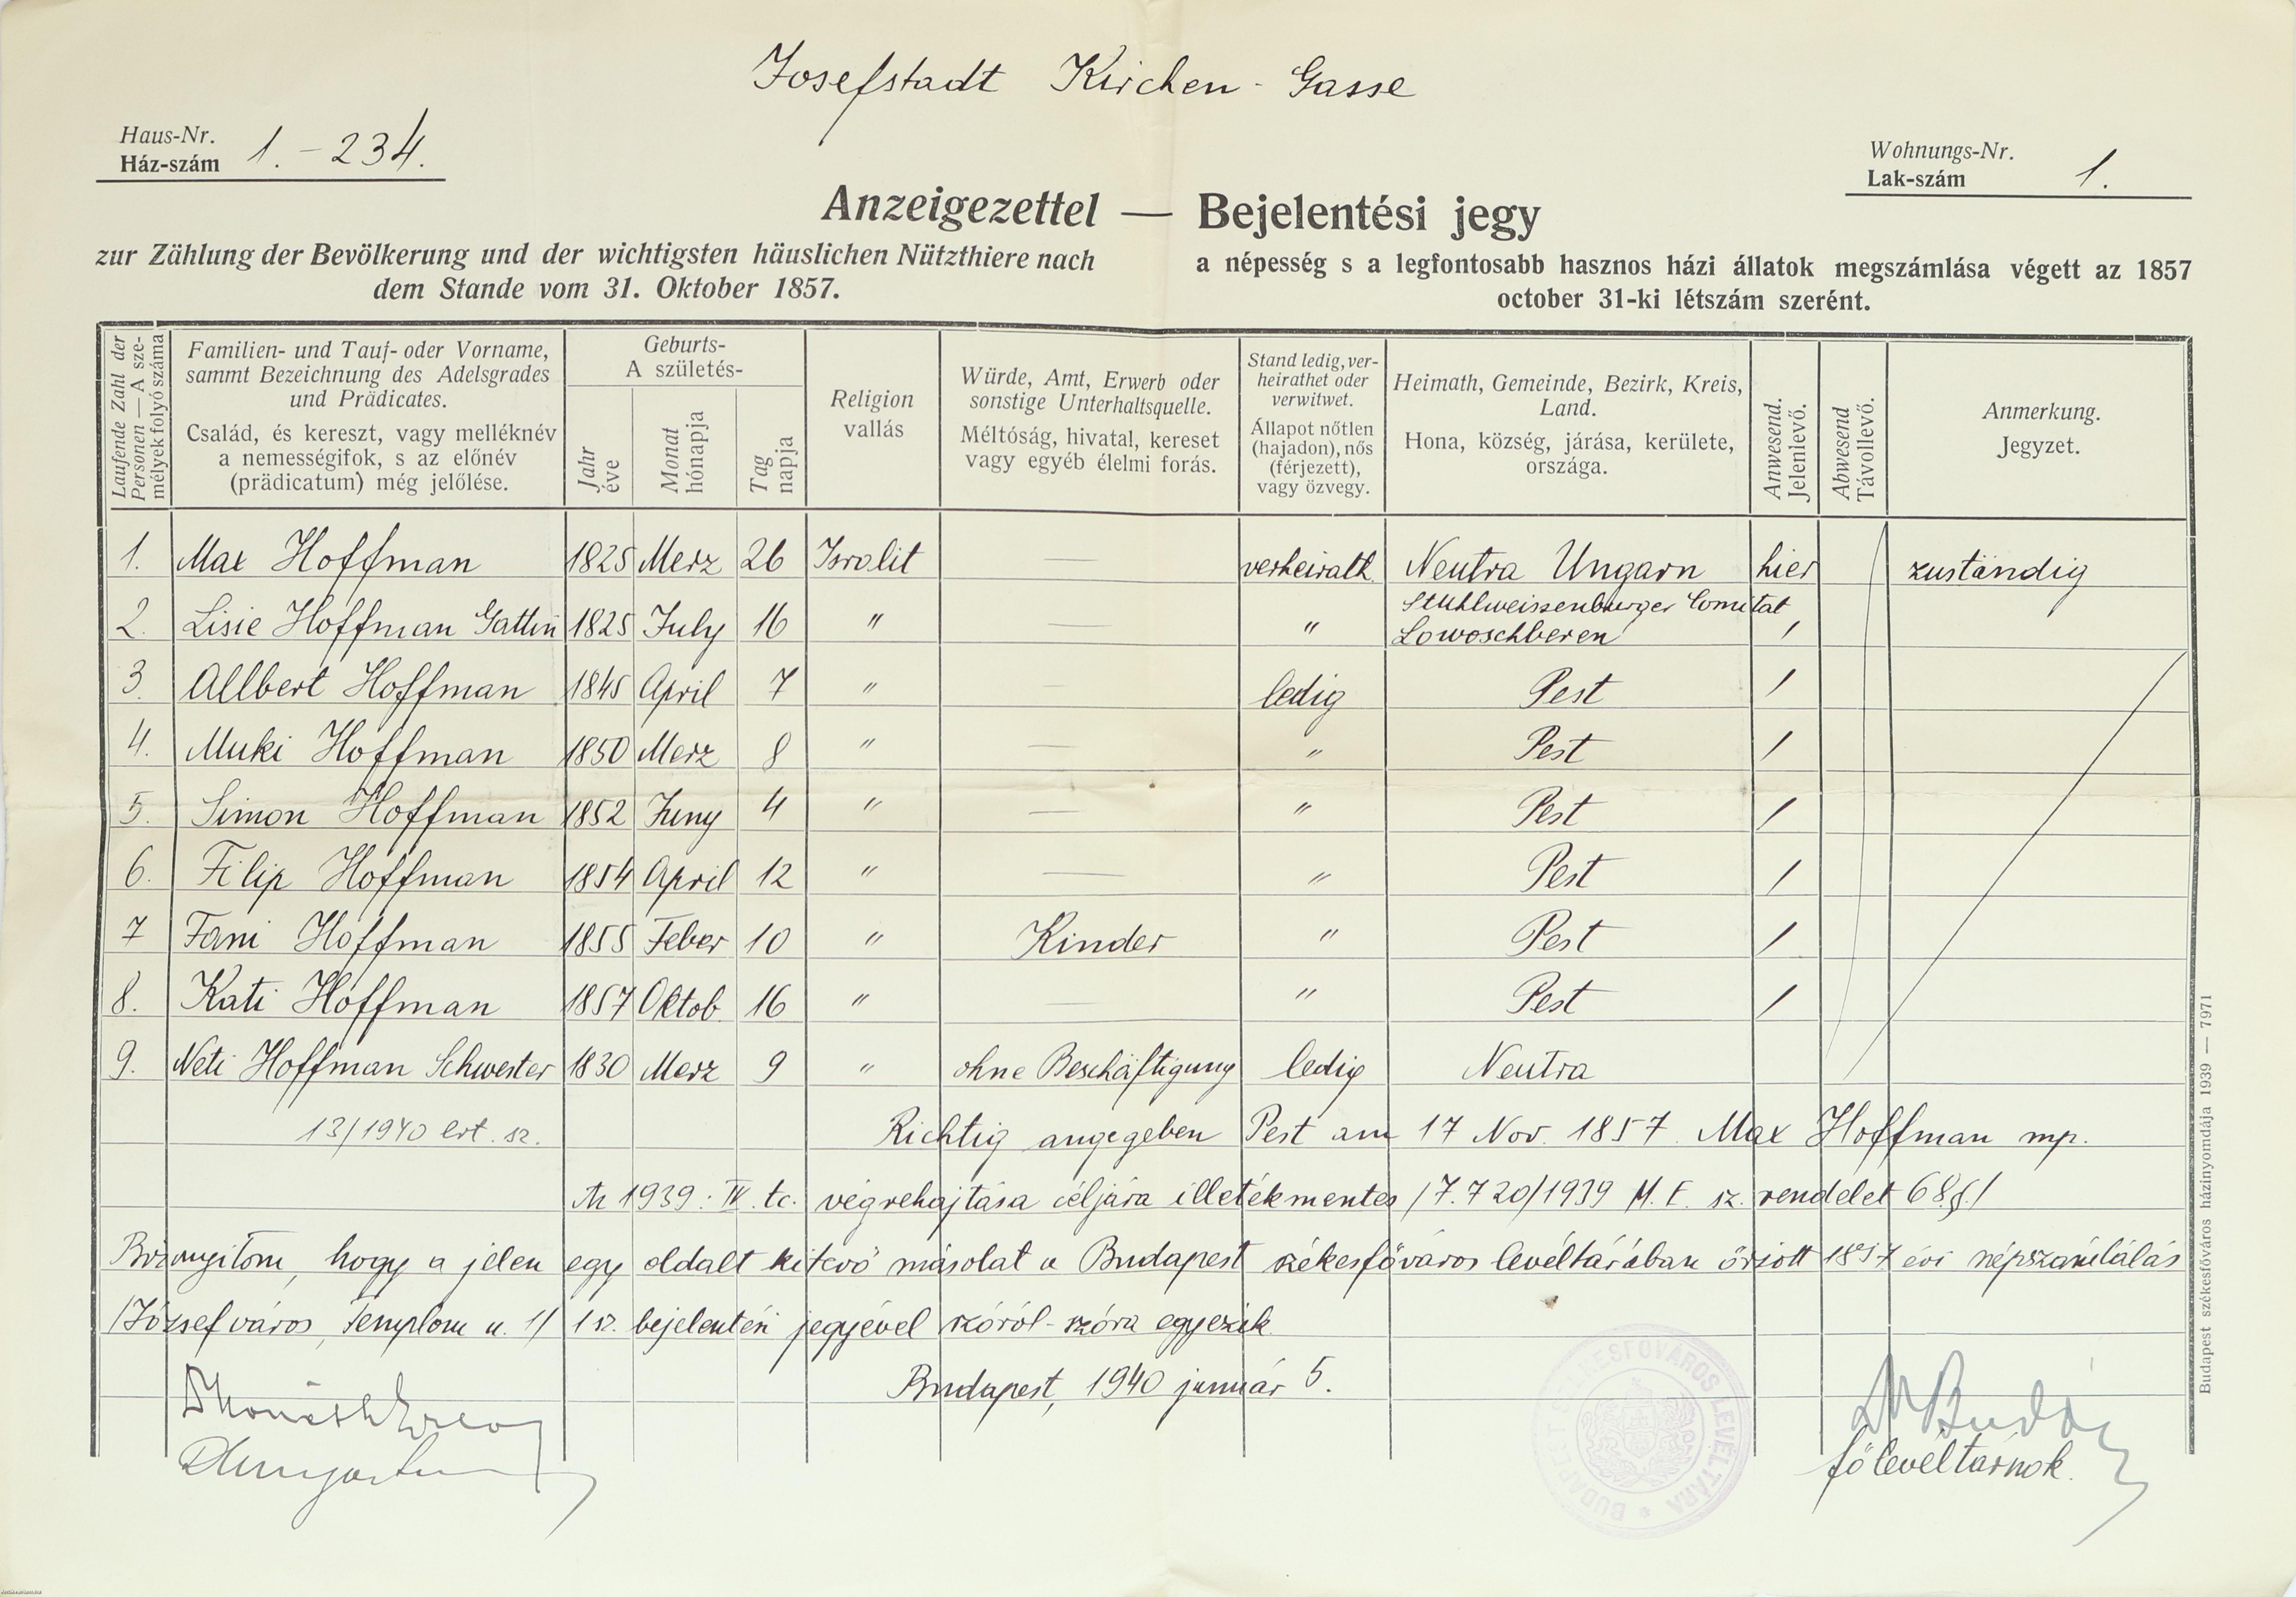 Josefstadt Kirchen-Gasse
Haus-Nr.
Ház-szám 1. - 234.
Wohnungs-Nr.
Lak-szám 1.
Anzeigezettel — Bejelentési jegy
zur Zählung der Bevölkerung und der wichtigsten häuslichen Nützthiere nach
dem Stande vom 31. Oktober 1857.
a népesség s a legfontosabb hasznos házi állatok megszámlása végett az 1857
october 31-ki létszám szerént.
Laufende Zahl der
Personen — A sze-
mélyek folyó száma
Familien- und Tauf- oder Vorname,
sammt Bezeichnung des Adelsgrades
und Prädicates.
Család, és kereszt, vagy melléknév
a nemességifok, s az előnév
(prädicatum) még jelőlése.
Geburts-
A születés-
Jahr
éve
Monat
hónapja
Tag
napja
Religion
vallás
Würde, Amt, Erwerb oder
sonstige Unterhaltsquelle.
Méltóság, hivatal, kereset
vagy egyéb élelmi forás.
Stand ledig, ver-
heirathet oder
verwitwet.
Állapot nőtlen
(hajadon), nős
(férjezett),
vagy özvegy.
Heimath, Gemeinde, Bezirk, Kreis,
Land.
Hona, község, járása, kerülete,
országa.
Anwesend.
Jelenlevő.
Abwesend
Távollevő.
Anmerkung.
Jegyzet.
1. Max Hoffman 1825 Merz 26 Isralit — verheirath. Neutra Ungarn hier zuständig
2. Lisie Hoffman Gattin 1825 July 16 " — " Stuhlweissenburger Comitat
Lowoschberen /
3. Allbert Hoffman 1845 April 7 " — ledig Pest /
4. Muki Hoffman 1850 Merz 8 " — " Pest /
5. Simon Hoffman 1852 Juny 4 " — " Pest /
6. Filip Hoffman 1854 April 12 " — " Pest /
7 Fani Hoffman 1855 Feber 10 " Kinder " Pest /
8. Kati Hoffman 1857 Oktob. 16 " — " Pest /
9. Neti Hoffman Schwester 1830 Merz 9 " ohne Beschäftigung ledig Neutra
13/1940 lvt. sz. Richtig angegeben Pest am 17 Nov. 1857. Max Hoffman mp.
Az 1939: IV. tc. végrehajtása céljára illetékmentes /7.720/1939 M. E. sz. rendelet 68.§./
Bizonyitom, hogy a jelen egy oldalt kitevő másolat a Budapest székesfőváros levéltárában őrzött 1857 évi népszámlálás
/Józsefváros, Templom u. 1/ 1 sz. bejelentési jegyével szóról-szóra egyezik.
Budapest, 1940 január 5.
főlevéltárnok.
BUDAPEST SZÉKESFŐVÁROS LEVÉLTÁRA
Budapest székesfőváros házinyomdája 1939 — 7971